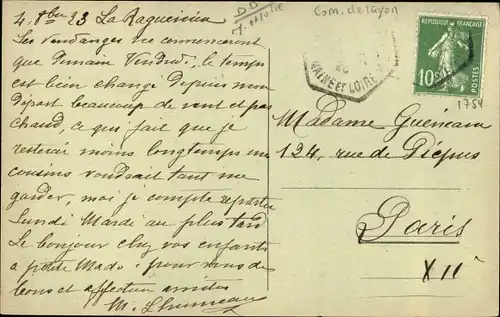 4, 8bre 23 La Raguenière
Les Vendanges ne commenceront
que demain Vendredi, le temps
est bien changé depuis mon
départ beaucoup de vent et pas
chaud, ce qui fait que je
resterai moins longtemps mes
cousins voudrait tant me
garder, moi je compte repartir
Lundi Mardi au plus tard
Le bonjour chez vos enfants
a petite Mado, pour vous de
bons et affectueu amities
M. Lhumeau
D.D
Com. de Layon
MAINE ET LOIRE
REPUBLIQUE FRANÇAISE
10c
POSTES
1754
Madame Guéneau
124, rue de Picpus
Paris
XII